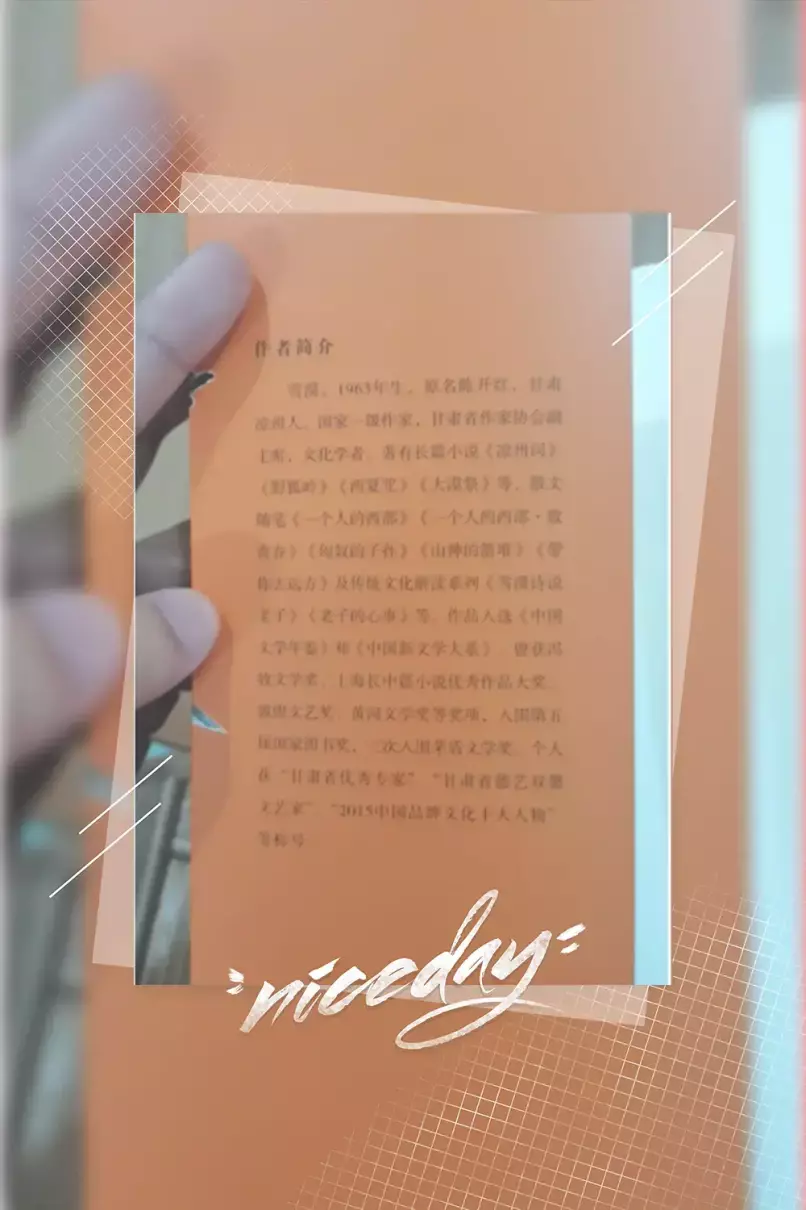 作者简介
雪漠，1963年生，原名陈开红，甘肃
凉州人。国家一级作家，甘肃省作家协会副
主席，文化学者。著有长篇小说《凉州词》
《野狐岭》《西夏咒》《大漠祭》等，散文
随笔《一个人的西部》《一个人的西部·致
青春》《匈奴的子孙》《山神的箭堆》《带
你去远方》及传统文化解读系列《雪漠诗说
老子》《老子的心事》等。作品入选《中国
文学年鉴》和《中国新文学大系》，曾获冯
牧文学奖、上海长中篇小说优秀作品大奖、
敦煌文艺奖、黄河文学奖等奖项，入围第五
届国家图书奖，三次入围茅盾文学奖。个人
在“甘肃省优秀专家”“甘肃省德艺双馨
文艺家”“2015中国品牌文化十大人物”
等称号
niceday